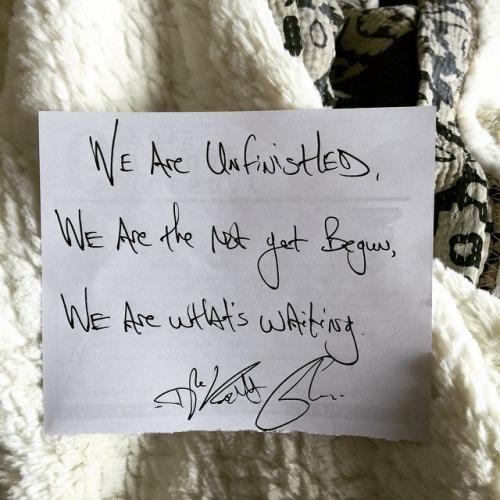 We Are Unfinished,
We Are the Not yet Begun,
We Are what's waiting.